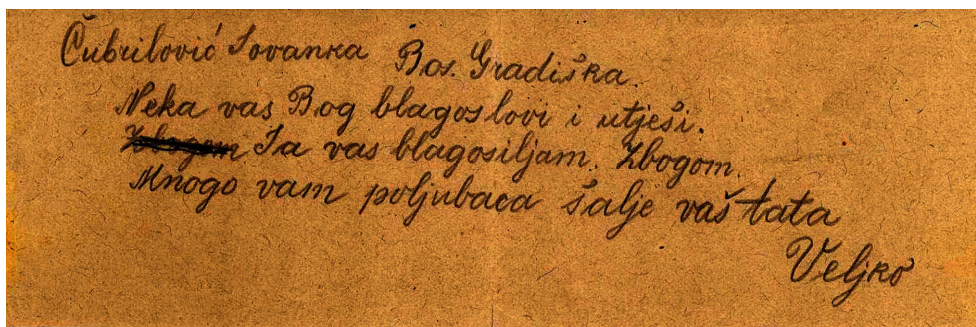 Čubrilović Jovanka Bos. Gradiška.
Neka vas Bog blagoslovi i utješi.
Ja vas blagosiljam. Zbogom.
Mnogo vam poljubaca šalje vaš tata
Veljko